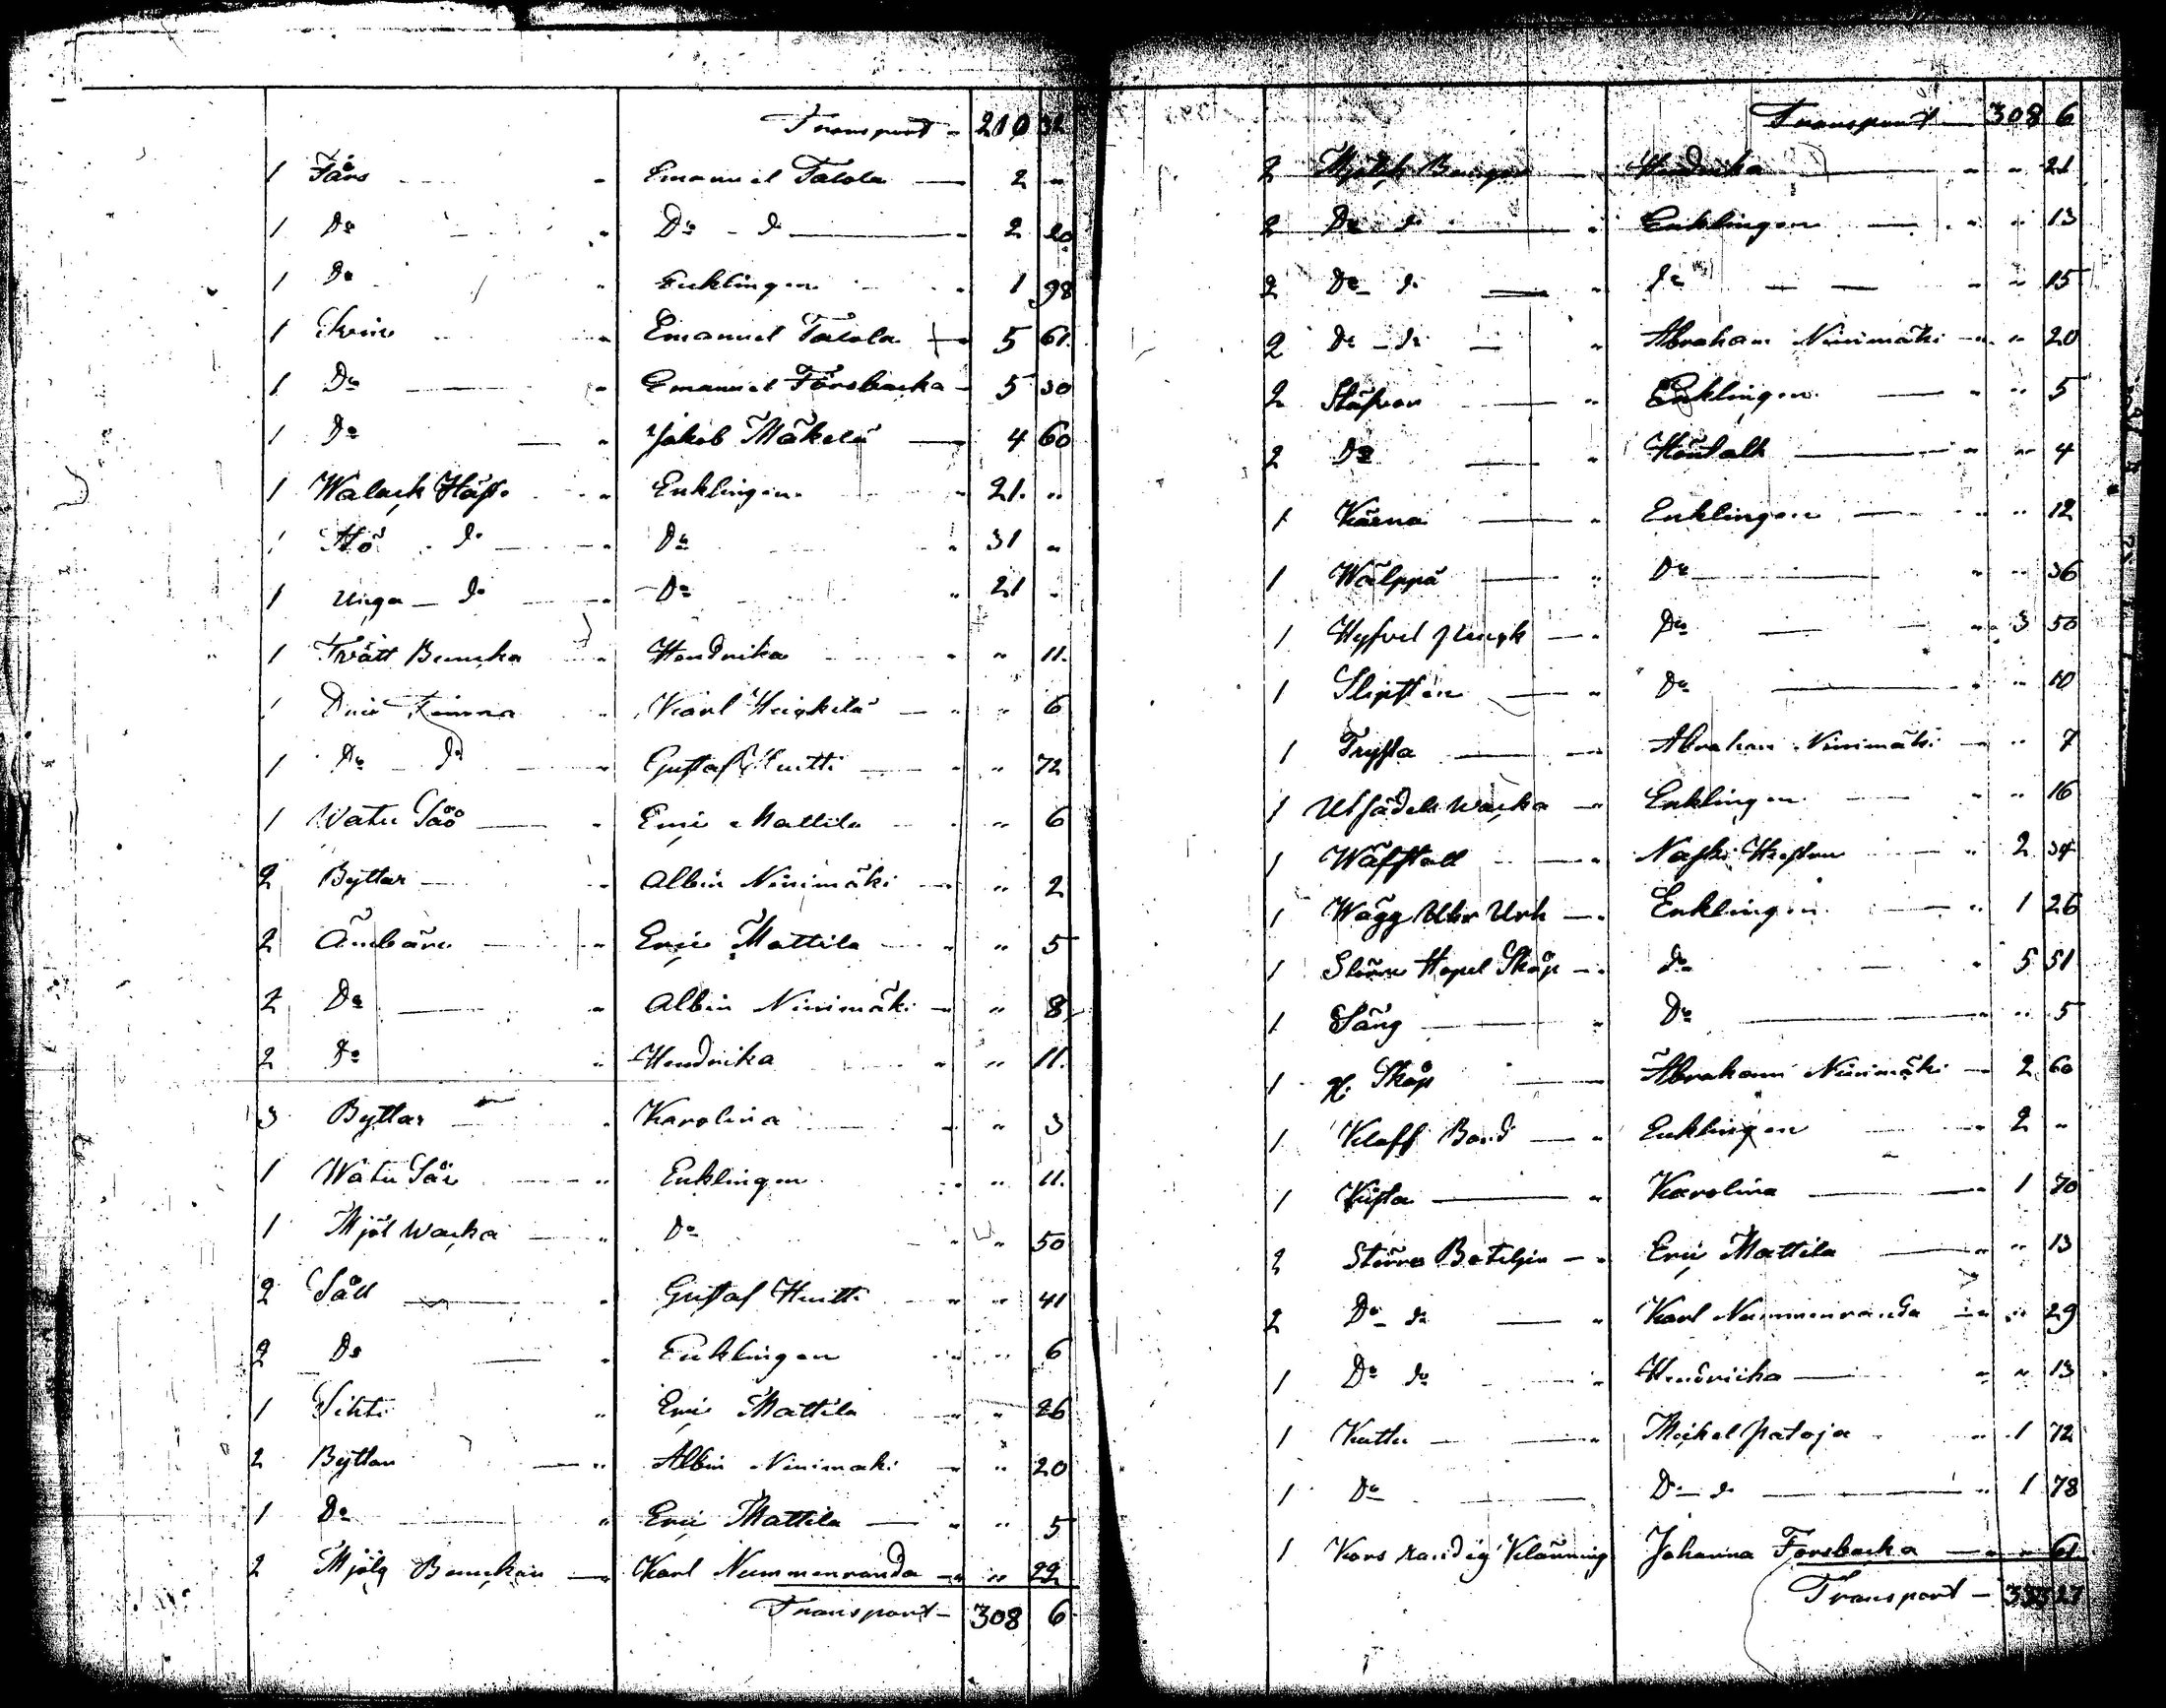 Transport - 210 32
1 Fårs - Emanuel Talola - 2 "
1 Do " Do - d - 2 20
1 Do " Enklingen " 1 98
1 Emanuel Talola 5 61
1 Do " Emanuel Forsbacka - 5 30
1 Do " Jakob Mäkelä 4 60
1 Walack Häst " Enklingen " 21 "
1 Stö do " Do " 31 "
1 Unga do " Do " 21 "
1 Tvätt Buncka " Hendrika " " 11
1 Karl Heickilä " " 6
1 Do do " Gustaf Huitti " " 72
1 Watu Såö " Eric Mattila " " 6
2 Byttar " Albin Ninimäki " " 2
2 Ämbäru " Eric Mattila " " 5
2 Do " Albin Ninimäki " " 8
2 Do " Hendrika " " 11
3 Byttar " Karolina " " 3
1 Watu Såö " Enklingen " " 11
1 Mjöl Wacka " Do " " 50
2 Såll " Gustaf Huitti " " 41
2 Do " Enklingen " " 6
1 Sihti " Eric Mattila " " 26
2 Byttar " Albin Ninimäki " " 20
1 Do " Eric Mattila " " 5
2 Mjölq Bunckar Karl Nummenranda " " 22
Transport - 308 6
Transport 308 6
2 Mjölck Hendrika " " 21
2 Do do " Enklingen " " 13
2 Do do " do " " 15
2 Do do " Abraham Ninimäki " " 20
2 Stäfvor " Enklingen " " 5
2 Do " " " 4
1 Kärna " Enklingen " " 12
1 Wälppä " Do " " 36
1 Hyfvel " Do " 3 50
1 Slipsten " Do " " 10
1 Abraham Ninimäki " " 7
1 Utsädes Wacka " Enklingen " " 16
1 Wäfstoll " " 2 34
1 Wägg Uhr Enklingen " 1 26
1 Större Skåp " do " 5 51
1 Säng " Do " " 5
1 Skåp Abraham Ninimäki 2 60
1 Klaff Bord " Enklingen " 2 "
1 Kista " Karolina " 1 70
2 Större Boteljer " Eric Mattila " " 13
2 Do do " Karl Nummenranda " " 29
1 Do do " Hendricka " " 13
1 Mickel Patoja " 1 72
1 Do Do - do " 1 78
1 Kors randig Klänning Johanna Forsbacka " " 61
Transport - 27